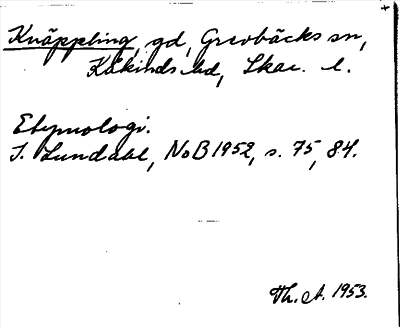 Knäppling, gd, Grevbäcks sn,
Kåkinds hd, Skar. l.
Etymologi.
I. Lundahl, NoB 1952, s. 75, 84.
Th. A. 1953.